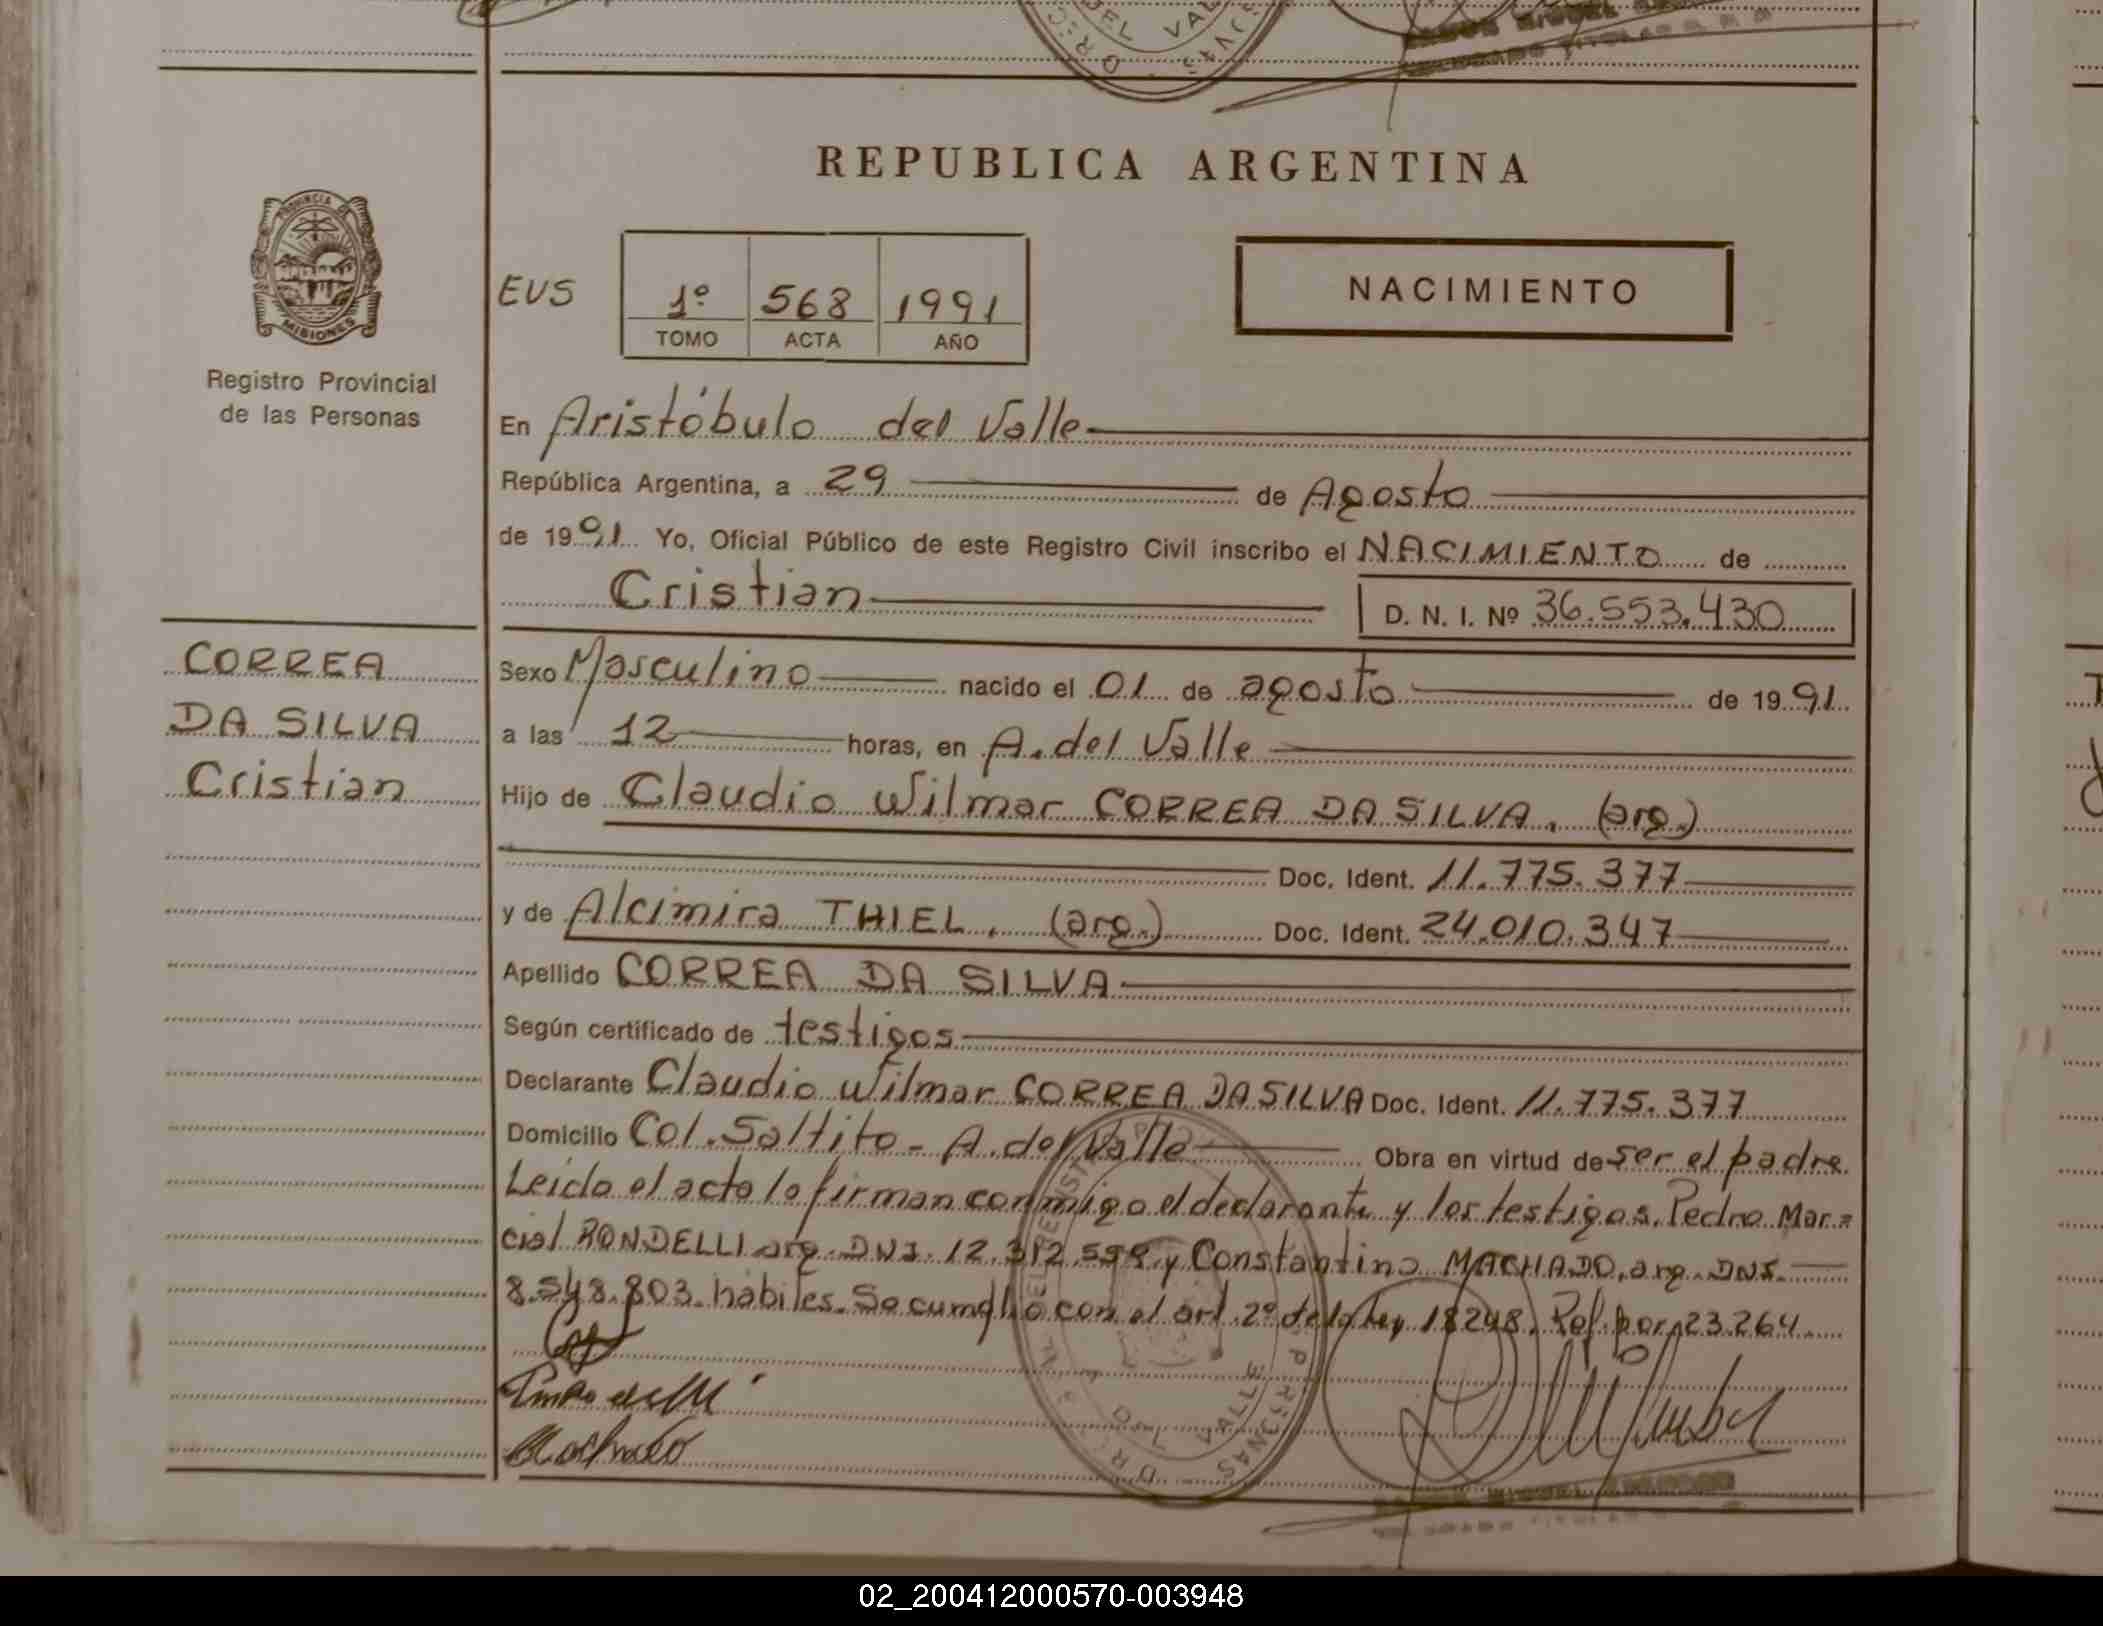 REPUBLICA ARGENTINA
PROVINCIA DE
MISIONES
Registro Provincial
de las Personas
EVS
1º 568 1991
TOMO ACTA AÑO
NACIMIENTO
En Aristóbulo del Valle
República Argentina, a 29 de Agosto
de 1991 Yo, Oficial Público de este Registro Civil inscribo el NACIMIENTO de
Cristian D. N. I. Nº 36.553.430
CORREA
DA SILVA
Cristian
Sexo Masculino nacido el 01 de agosto de 1991
a las 12 horas, en A. del Valle
Hijo de Claudio Wilmar CORREA DA SILVA. (arg.)
Doc. Ident. 11.775.377
y de Alcimira THIEL. (arg.) Doc. Ident. 24.010.347
Apellido CORREA DA SILVA
Según certificado de testigos
Declarante Claudio Wilmar CORREA DA SILVA Doc. Ident. 11.775.377
Domicilio Col. Saltito - A. del Valle Obra en virtud de ser el padre
Leido el acta lo firman conmigo el declarante y los testigos. Pedro Mar=
cial RONDELLI arg. DNI. 12.312.599 y Constantino MACHADO, arg. DNI.
8.548.803. habiles. Se cumplio con el art. 2º de la Ley 18248. Ref. por 23.264
Machado
DEL VALLE
02_200412000570-003948